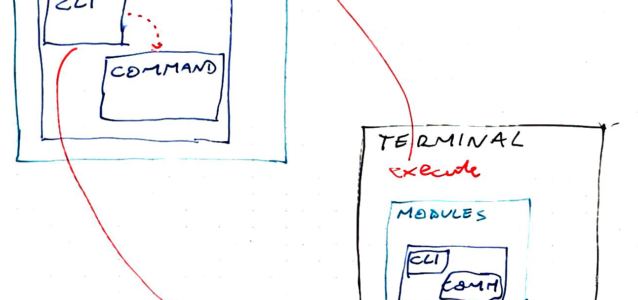 CLI
COMMAND
TERMINAL
execute
MODULES
CLI
COMM